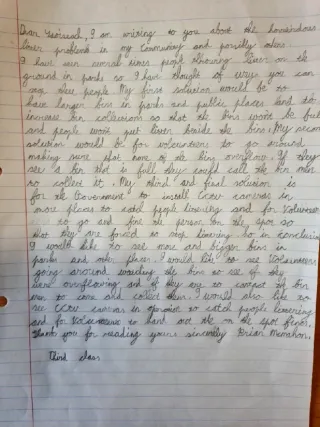 Dear Taoiseach, I am writing to you about the horrendous
litter problem in my Community and possibly others.
I have seen several times people throwing litter on the
ground in parks so I have thought of ways you can
stop these people. My first solution would be to
have larger bins in parks and public places and to
increase bin collections so that the bins wont be full
and people wont put litter beside the bins. My second
solution would be for volunteers to go around
making sure that none of the bins overflow. If they
see a bin that is full they could call the bin men
to collect it. My third and final solution is
for the Government to install CCTV cameras in
more places to catch people littering and for Volunteers
to go and fine the person on the spot so
that they are forced to stop littering. So in conclusion
I would like to see more and bigger bins in
parks and other places. I would like to see Volunteers
going around watching the bins to see if they
were overflowing and if they are to contact the bin
men to come and collect them. I would also like to
see CCTV cameras in operation to catch people littering
and for Volunteers to hand out the on the spot fines.
Thank you for reading yours sincerely Brian McMahon.
Third class